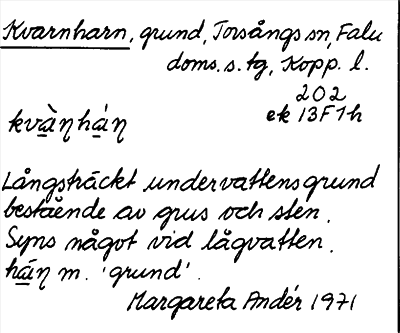 Kvarnharn, grund, Torsångs sn, Falu
doms. s. tg, Kopp. l.
202
ek 13F1h
kvàŋháŋ
Långsträckt undervattensgrund
bestående av grus och sten.
Syns något vid lågvatten.
háŋ m. 'grund'.
Margareta Andér 1971